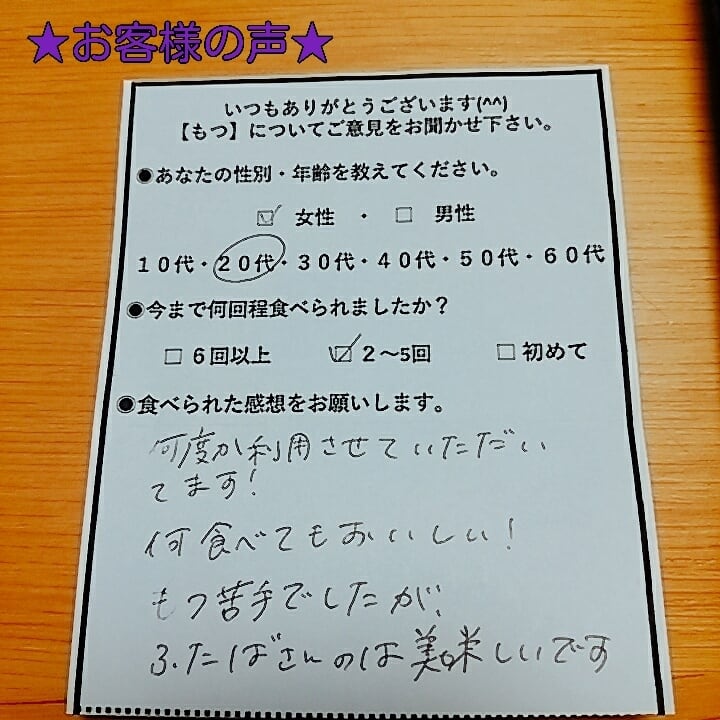 ★お客様の声★
いつもありがとうございます(^^)
【もつ】についてご意見をお聞かせ下さい。
◉あなたの性別・年齢を教えてください。
☑ 女性 ・ □ 男性
10代・20代・30代・40代・50代・60代
◉今まで何回程食べられましたか？
□ 6回以上 ☑ 2～5回 □ 初めて
◉食べられた感想をお願いします。
何度か利用させていただい
てます！
何食べてもおいしい！
もつ苦手でしたが、
ふたばさんのは美味しいです